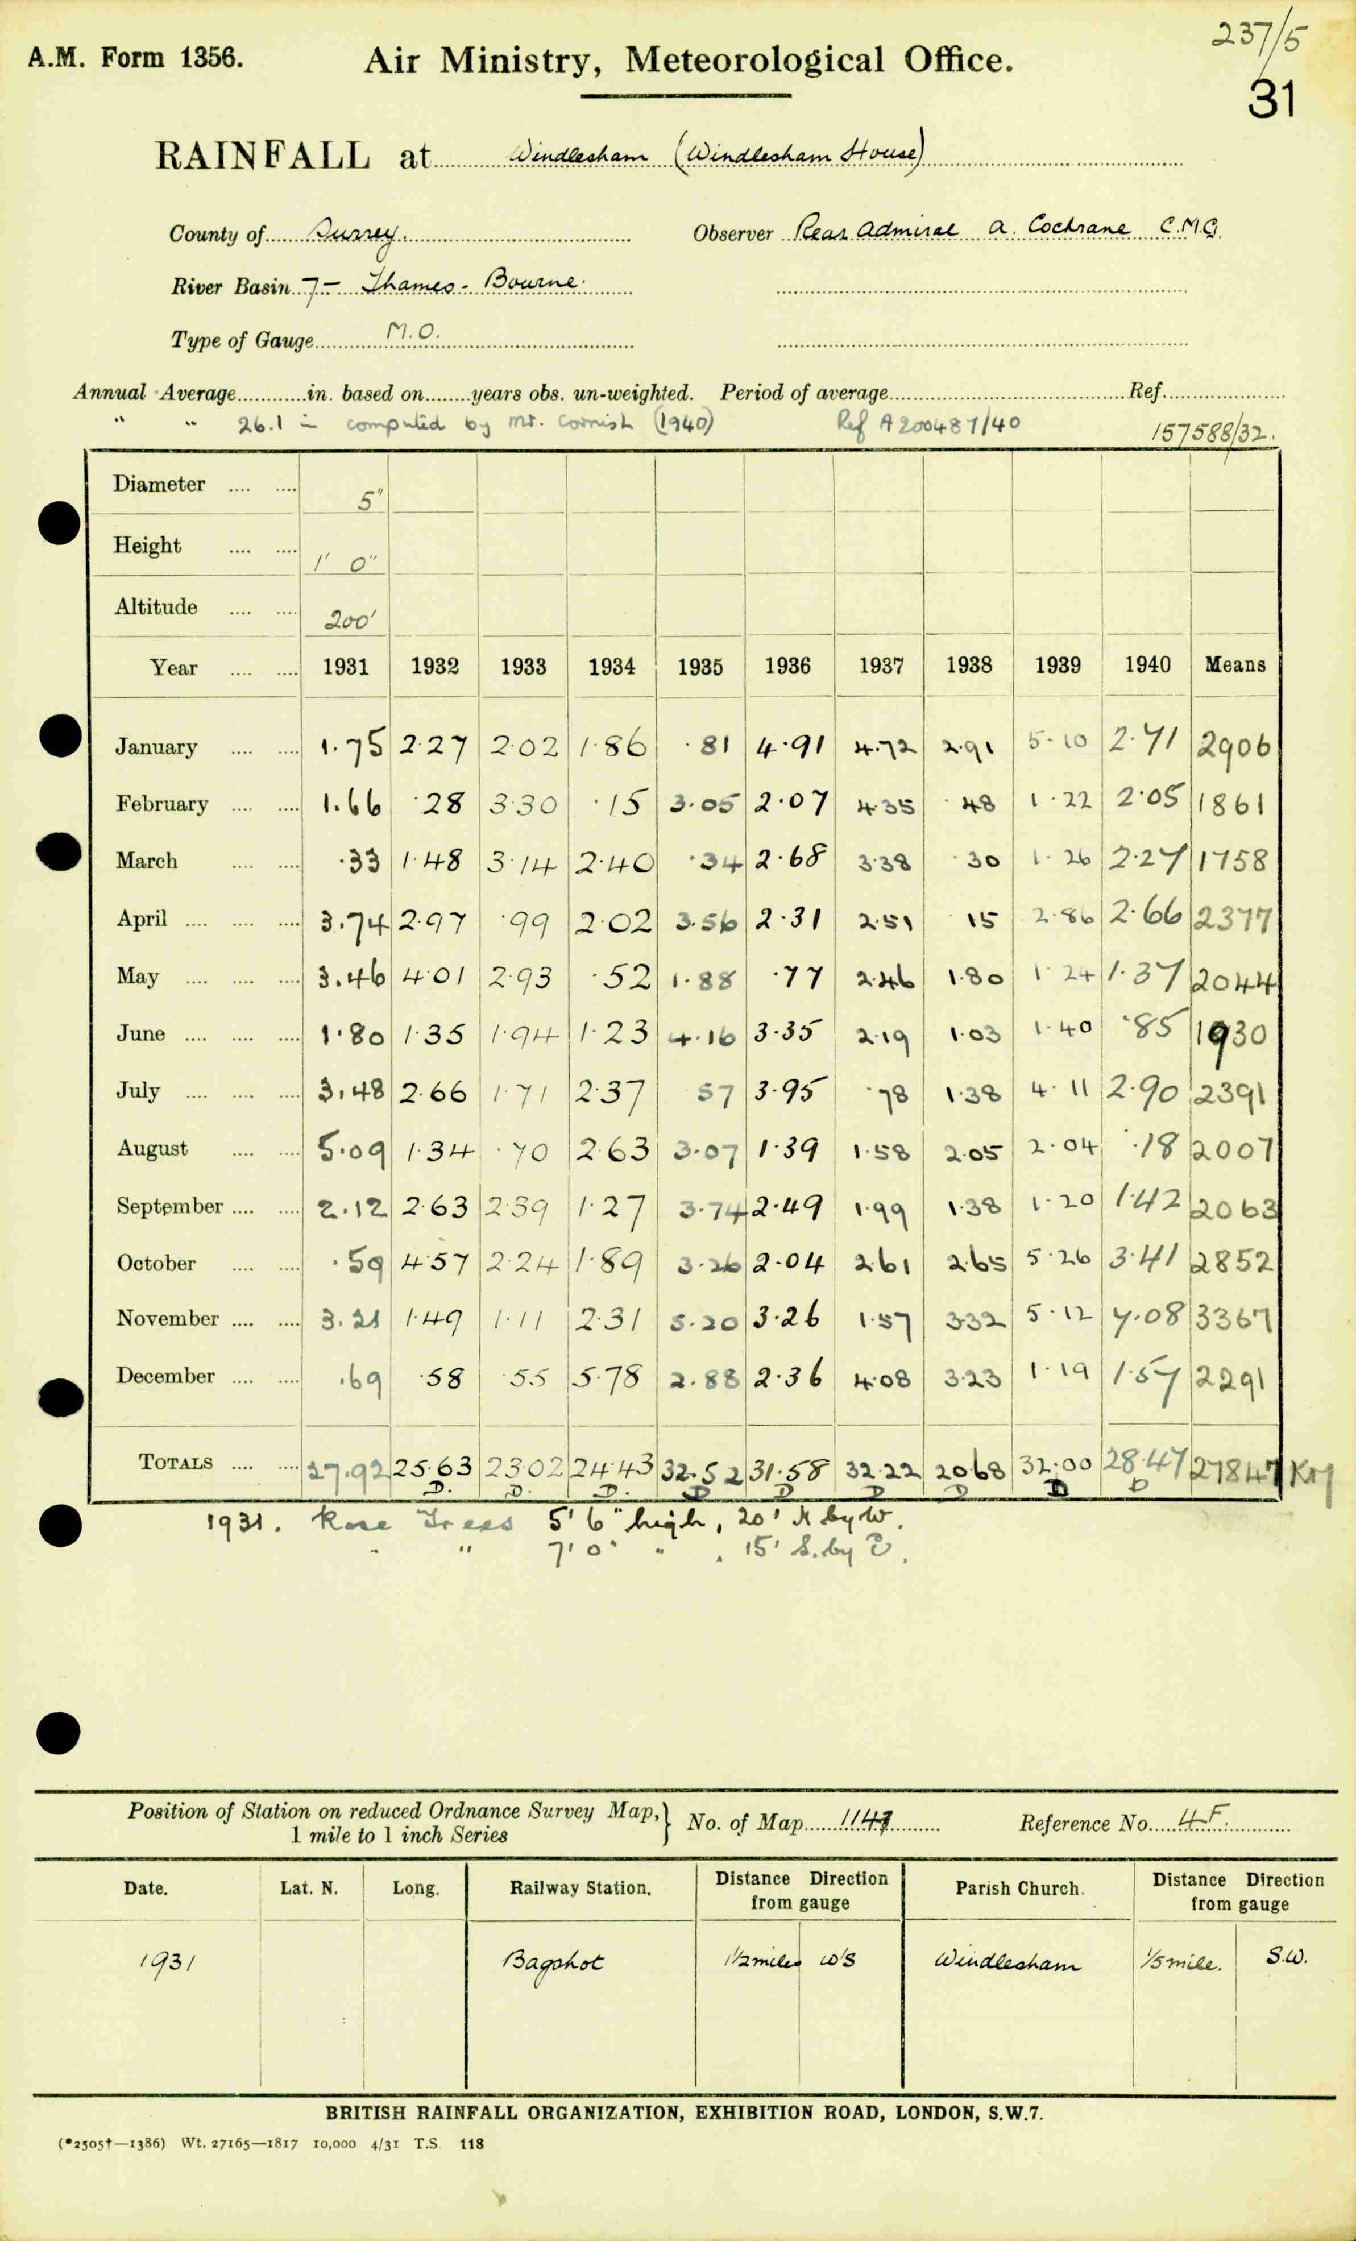 237/5
A.M. Form 1356. Air Ministry, Meteorological Office.
31
RAINFALL at Windlesham (Windlesham House)
County of Surrey. Observer Rear Admiral A. Cochrane C.M.G.
River Basin 7- Thames - Bourne.
Type of Gauge M.O.
Annual Average in. based on years obs. un-weighted. Period of average Ref.
" " 26.1 in computed by Mr. Cornish (1940) Ref A200487/40 157588/32.
Diameter .... .... 5"
Height .... .... 1' 0"
Altitude .... .... 200'
Year .... .... 1931 1932 1933 1934 1935 1936 1937 1938 1939 1940 Means
January .... .... 1.75 2.27 2.02 1.86 .81 4.91 4.72 2.91 5.10 2.71 2906
February .... .... 1.66 .28 3.30 .15 3.05 2.07 4.35 .48 1.22 2.05 1861
March .... .... .33 1.48 3.14 2.40 .34 2.68 3.38 .30 1.26 2.27 1758
April .... .... .... 3.74 2.97 .99 2.02 3.56 2.31 2.51 15 2.86 2.66 2377
May .... .... .... 3.46 4.01 2.93 .52 1.88 .77 2.46 1.80 1.24 1.37 2044
June .... .... .... 1.80 1.35 1.94 1.23 4.16 3.35 2.19 1.03 1.40 .85 1930
July .... .... .... 3.48 2.66 1.71 2.37 57 3.95 .78 1.38 4.11 2.90 2391
August .... .... 5.09 1.34 .70 2.63 3.07 1.39 1.58 2.05 2.04 .18 2007
September .... .... 2.12 2.63 2.39 1.27 3.74 2.49 1.99 1.38 1.20 1.42 2063
October .... .... .59 4.57 2.24 1.89 3.26 2.04 2.61 2.65 5.26 3.41 2852
November .... .... 3.21 1.49 1.11 2.31 5.20 3.26 1.57 3.32 5.12 7.08 3367
December .... .... .69 .58 .55 5.78 2.88 2.36 4.08 3.23 1.19 1.57 2291
TOTALS .... .... 27.92 25.63 23.02 24.43 32.52 31.58 32.22 20.68 32.00 28.47 27847
D. D. D. D D D D D D
1931. Rose Trees 5' 6" high, 20' N by W.
" " 7' 0" " , 15' S. by E.
Position of Station on reduced Ordnance Survey Map, 1 mile to 1 inch Series } No. of Map 114 Reference No. 4F.
Date. Lat. N. Long. Railway Station. Distance Direction from gauge Parish Church. Distance Direction from gauge
1931 Bagshot 1½ miles W'S Windlesham 1/5 mile. S.W.
BRITISH RAINFALL ORGANIZATION, EXHIBITION ROAD, LONDON, S.W.7.
(*2505†—1386) Wt. 27165—1817 10,000 4/31 T.S. 118